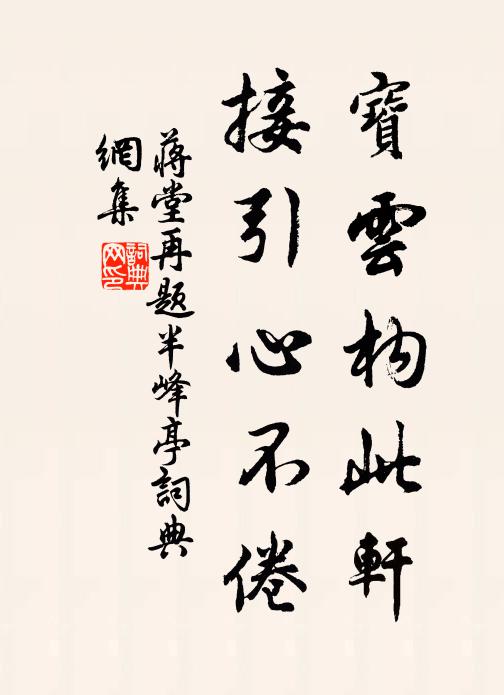 寶雲构此軒
接引心不倦
蔣堂再题半峰亭詞典
網集
詞典
网印